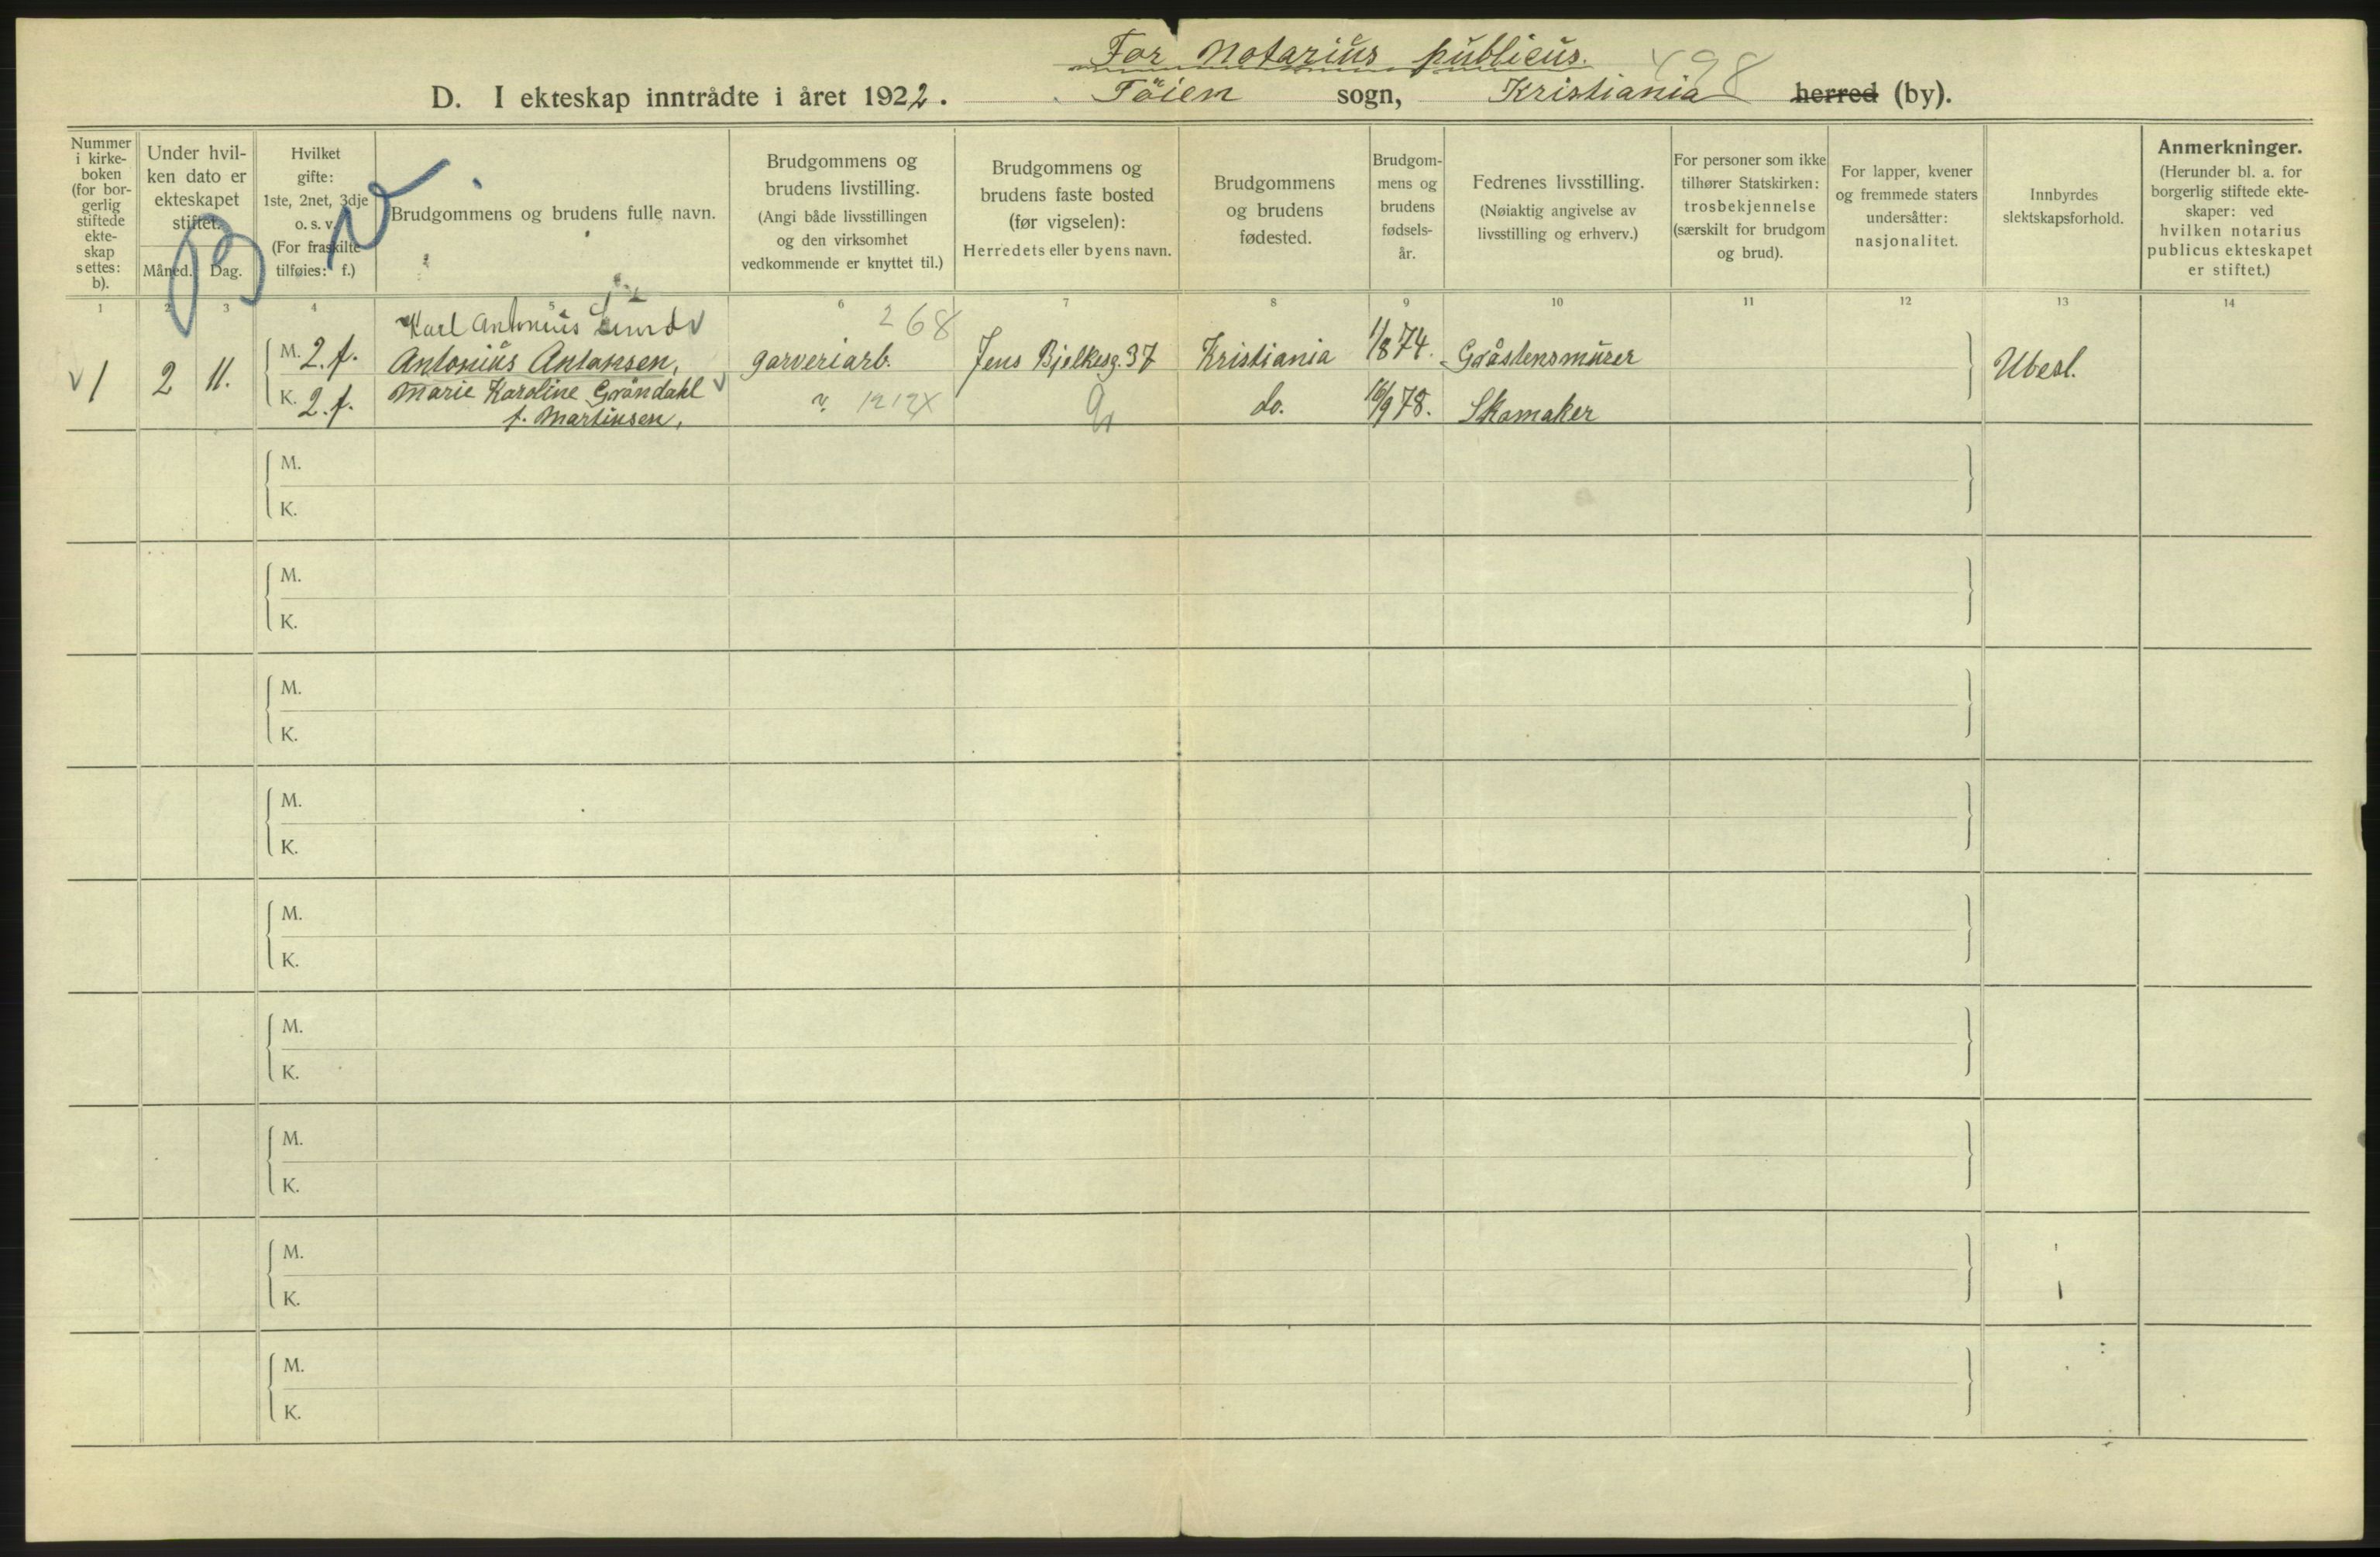 For Notarius publicus. 498
D. I ekteskap inntrådte i året 1922. Töien sogn, Kristiania herred (by).
Nummer i kirkeboken (for borgerlig stiftede ekteskap settes: b).
Under hvilken dato er ekteskapet stiftet.
Måned. Dag.
Hvilket gifte: 1ste, 2net, 3dje o. s. v. (For fraskilte tilføies: f.)
Brudgommens og brudens fulle navn.
Brudgommens og brudens livstilling. (Angi både livsstillingen og den virksomhet vedkommende er knyttet til.)
Brudgommens og brudens faste bosted (før vigselen): Herredets eller byens navn.
Brudgommens og brudens fødested.
Brudgommens og brudens fødselsår.
Fedrenes livsstilling. (Nøiaktig angivelse av livsstilling og erhverv.)
For personer som ikke tilhører Statskirken: trosbekjennelse (særskilt for brudgom og brud).
For lapper, kvener og fremmede staters undersåtter: nasjonalitet.
Innbyrdes slektskapsforhold.
Anmerkninger. (Herunder bl. a. for borgerlig stiftede ekteskaper: ved hvilken notarius publicus ekteskapet er stiftet.)
1 2 3 4 5 6 7 8 9 10 11 12 13 14
Karl Antonius Lund 268
1 2 11. M. 2. f. Antonius Antonsen, garveriarb. Jens Bjelkesg. 37 Kristiania 1/8 74. Gråstensmurer Ubesl.
K. 2. f. Marie Karoline Gröndahl do. 16/9 78. Skomaker
f. Martinsen,
M.
K.
M.
K.
M.
K.
M.
K.
M.
K.
M.
K.
M.
K.
M.
K.
M.
K.